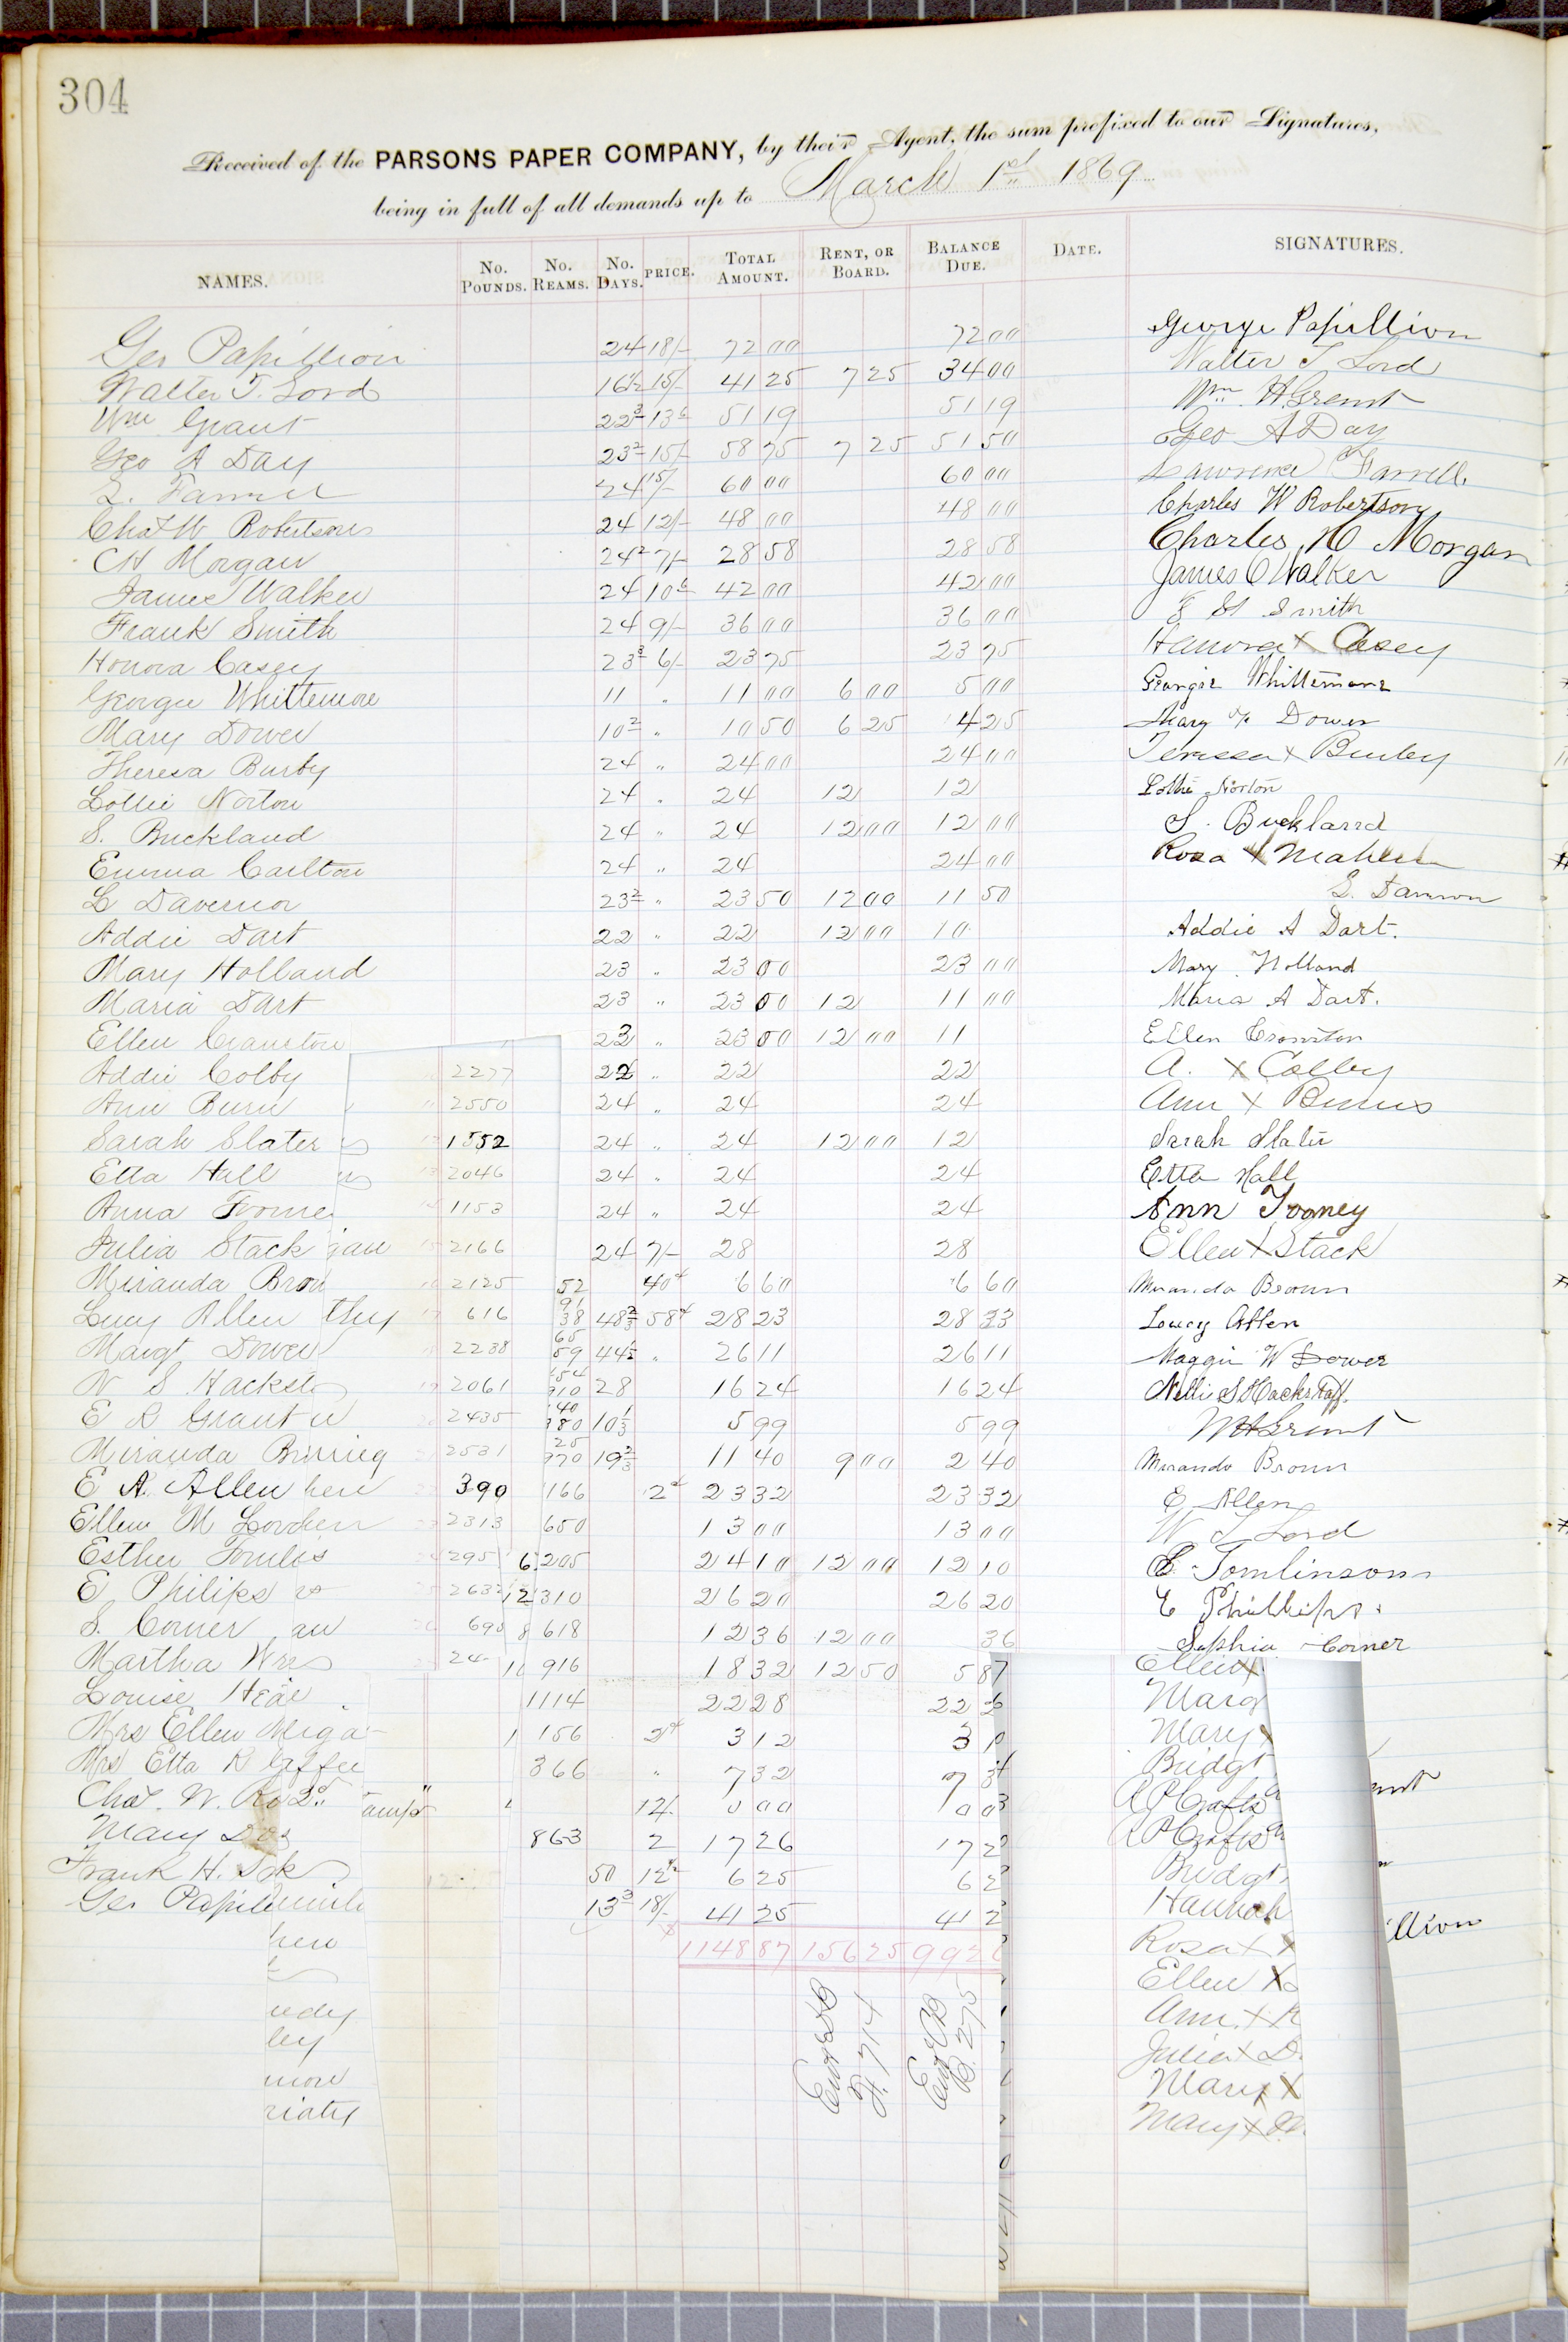 304
Received of the PARSONS PAPER COMPANY, by their Agent, the sum prefixed to our Signatures,
being in full of all demands up to March 1st 1869
NAMES. No. Pounds. No. Reams. No. Days. PRICE. Total Amount. Rent, or Board. Balance Due. Date. SIGNATURES.
Geo Papillion 24 18/- 72 00 72 00 George Papillion
Walter T. Lord 16½ 15/- 41 25 7 25 34 00 Walter T Lord
Wm Grant 22 3 13 6 51 19 51 19 Wm. H. Grant
Geo A Day 23 2 15/- 58 75 7 25 51 50 Geo A Day
L. Farrell 24 15/- 60 00 60 00 Lawrence Farrell.
Chas W Robertson 24 12/- 48 00 48 00 Charles W Robertson
CH Morgan 24 2 7/- 28 58 28 58 Charles H Morgan
James Walker 24 10 6 42 00 42 00 James C Walker
Frank Smith 24 9/- 36 00 36 00 F H Smith
Honora Casey 23 3 6/- 23 75 23 75 Hanora x Casey
Georgie Whittemore 11 " 11 00 6 00 5 00 Georgie Whittemore
Mary Dower 10 2 " 10 50 6 25 4 25 Mary Dower
Theresa Burby 24 " 24 00 24 00 Teressa x Burley
Lottie Norton 24 " 24 12 12 Lottie Norton
S. Buckland 24 " 24 12 00 12 00 S. Buckland
Emma Carlton 24 " 24 24 00 Rosa x
L Davernor 23 2 " 23 50 12 00 11 50
Addie Dart 22 " 22 12 00 10 Addie A Dart.
Mary Holland 23 " 23 00 23 00 Mary Holland
Maria Dart 23 " 23 00 12 11 00 Maria A Dart.
Ellen Cranston 23 " 23 00 12 00 11 Ellen Cranston
Addie Colby 2277 22 " 22 22 A. x Colby
Ann Burn 2550 24 " 24 24 Ann x Burns
Sarah Slater 1552 24 " 24 12 00 12 Sarah Slater
Etta Hall 2046 24 " 24 24 Etta Hall
Anna 1153 24 " 24 24 Ann Toomey
Julia Stack gan 2166 24 7/- 28 28 Ellen x Stack
Miranda Brow 2125 52 40 6 60 6 60 Miranda Brown
Lucy Allen thy 616 91 38 48⅔ 58 28 23 28 23 Loucy Allen
Margt Dower 2238 65 59 44½ " 26 11 26 11 Maggie W Dower
N S Hackst 2061 154 910 28 16 24 16 24 Nellie S Hackstaff.
E R Grant 2435 40 380 10⅓ 5 99 5 99 WH Grant
Miranda 2531 25 970 19⅔ 11 40 9 00 2 40 Miranda Brown
E A. Allen hen 390 166 2 23 32 23 32 E Allen
Ellen M Lorden 2313 650 13 00 13 00 W T Lord
Esther 295 6 205 24 10 12 00 12 10 E. Tomlinson
E Philips 2632 12 310 26 20 26 20 E Phillips.
S. Corner an 690 8 618 12 36 12 00 36 Sophia Corner
Martha 24 916 18 32 12 50 5 87 Ellen x
Louise 1114 22 28 22 Marg
Mrs Ellen 156 2 3 12 3 Mary x
Mrs Etta R 366 " 7 32 7 Bridgt
Chas. W. Ro 12/. 0 00 R P Crafts
Mary 863 2 17 26 17 2 R P Crafts
Frank H. 50 12 6 25 6 2 Bridgt
Geo Papil 13 3 18/- 41 25 41 2 Hannah
1148 87 156 25 992 Rosa x
llion
Ellen x
Ann. x
ley Julia x D.
more Mary x
riaty Mary x